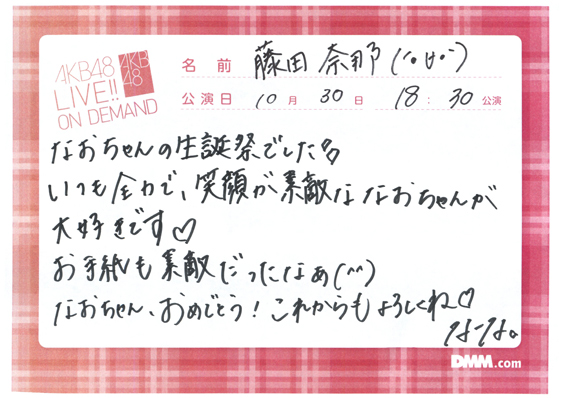 AKB48
LIVE!!
ON DEMAND
AKB
48
名前 藤田 奈那 (`･ω･´)
公演日 10月 30日 18:30公演
なおちゃんの生誕祭でした
いつも全力で、笑顔が素敵ななおちゃんが
大好きです♡
お手紙も素敵だったなぁ(^^)
なおちゃん、おめでとう!これからもよろしくね♡
なーな。
DMM.com